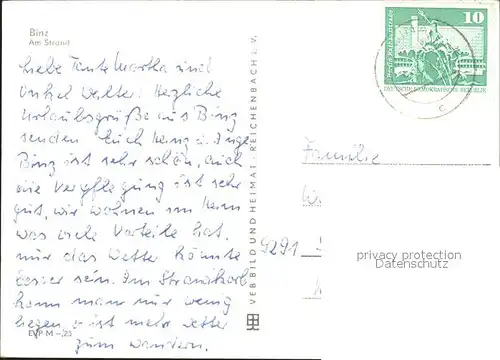 Binz
Am Strand
Liebe Tante Martha und
Onkel Walter. Herzliche
Urlaubsgrüße aus Binz
senden Euch Heinz u. Inge
Binz ist sehr schön, auch
die Verpflegung ist sehr
gut, wir wohnen im Heim
was viele Vorteile hat.
nur das Wetter könnte
besser sein. Im Strandkorb
kann man nur wenig
liegen, es ist mehr Wetter
zum wandern.
EVP M -,25
VEB BILD UND HEIMAT · REICHENBACH i. V.
10
DEUTSCHE DEMOKRATISCHE REPUBLIK
C
Familie
9291
privacy protection
Datenschutz